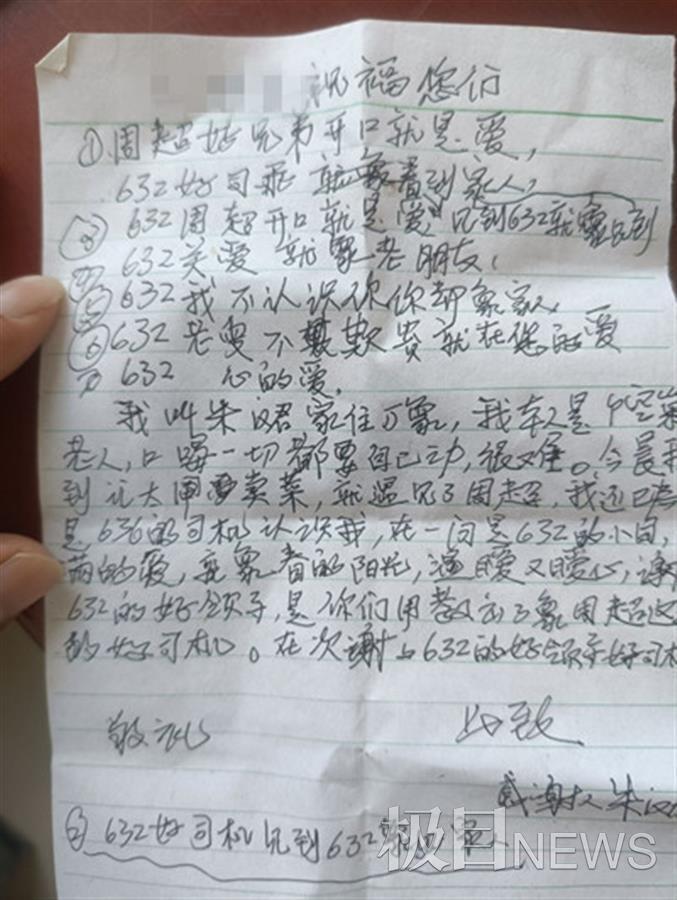 祝福您们
①周超好兄弟开口就是爱,
632好司机就象看到家人,
③632周超开口就是爱,见到632就象见到
④632关爱就象老朋友,
⑤632我不认识你你却象家人
⑥632老叟不欺贵就在您的爱
⑦632 心的爱,
我叫朱汉君家住万象,我本人是个空巢
老人,口喝一切都要自己动,很难。今晨我
到 太闸 卖菜,就遇见了周超,我还已为
是636的司机认识我,在一问是632的小
满的爱,就象春的阳光,温暖又暖心,谢
632的好领导,是你们用教 了象周超这
的好司机。在次谢 632的好领导好司机
敬礼
此致
感谢人朱汉
②632好司机见到632就 家人
极目NEWS